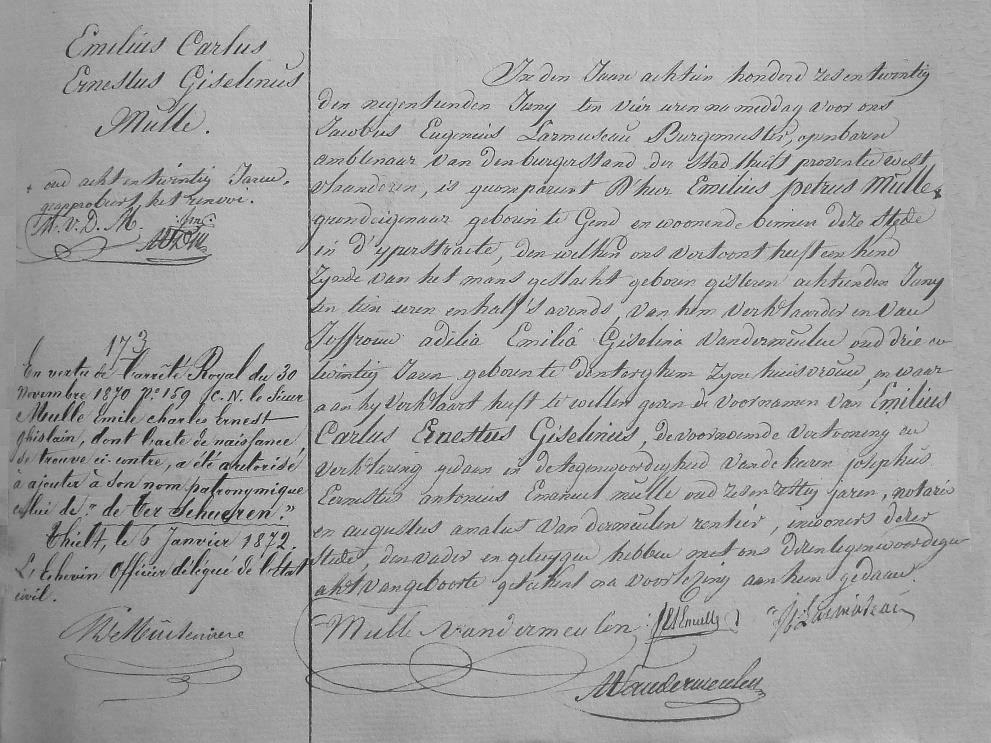 Emilius Carlus
Ernestus Giselinus
Mulle.
+ oud acht en twintig Jaren.
geapprobeert het renvoi.
M. v. D. M.
173
En vertu de l'arrêté Royal du 30
novembre 1870 n° 159 JC. N. le Sieur
Mulle Emile charles Ernest
ghislain, dont l'acte de naissance
se trouve ci-contre, a été autorisé
à ajouter à son nom patronymique
celui de "de Ter Schueren."
Thielt, le 6 Janvier 1872.
L'Echevin Officier délégué de l'Etat
civil.
In den Jaere achtien honderd zes en twintig
den negentienden Juny ten vier uren na middag voor ons
Jacobus Eugenius Larmuseau Burgemeester, openbaren
ambtenaar van den burgerstand der stad thielt provintie west
vlaanderen, is gecompareert D'heer Emilius petrus Mulle +
grondeigenaar geboren te Gend en woonende binnen deze stede
in d'yperstraete, den welken ons vertoont heeft een kind
zynde van het mans geslacht geboren gisteren achtienden Juny
ten tien uren en half 's avonds, van hem verklaarder en van
Joffrouw adilia Emilia Giselina Vandermeulen oud drie en
twintig Jaren geboren te denterghem zyne huisvrouw, en waer
aan hy verklaart heeft te willen geven de voornamen van Emilius
Carlus Ernestus Giselinus, de voornoemde vertooning en
verklaring gedaen in de tegenwoordigheid van de heeren josephus
Ernestus antonius Emanuel mulle oud zes en zestig jaren, notaris
en augustus amalus Vandermeulen rentier, inwoners dezer
stede, den vader en getuygen hebben met ons dezen tegenwoordigen
akt van geboorte geteekent na voorlezing aan hun gedaan.
Mulle vandermeulen JLarmuseau
AVandermeulen